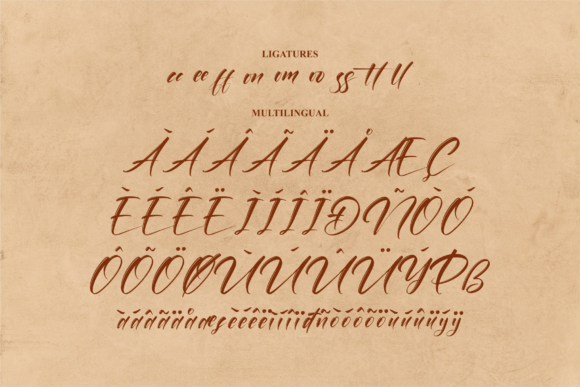 LIGATURES
cc ee ff on om oo ss tt ll
MULTILINGUAL
ÀÁÂÃÄÅÆÇ
ÈÉÊËÌÍÎÏÐÑÒÓ
ÔÕÖØÙÚÛÜÝÞß
àáâãäåæçèéêëìíîïđñòóôõöùúûüýÿ